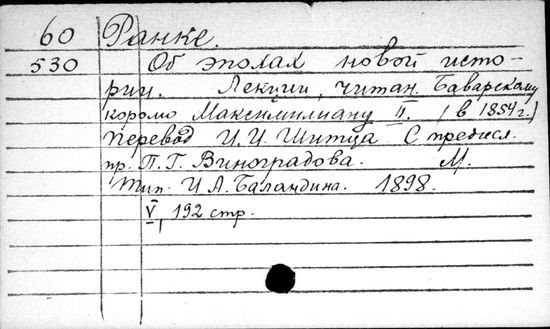 60 Ранке.
530 Об эпохах новой исто-
рии. Лекции, читан. Баварскому
королю Максимилиану II. (в 1854 г.)
Перевод И. И. Шитца С предисл.
пр. П. Г. Виноградова. М.
Тип. И А. Баландина. 1898.
V, 192 стр.